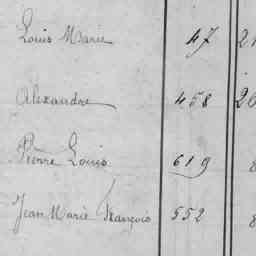 Louis Marie 47 21
Alexandre 458 20
Pierre Louis 619 8
Jean Marie François 552 8